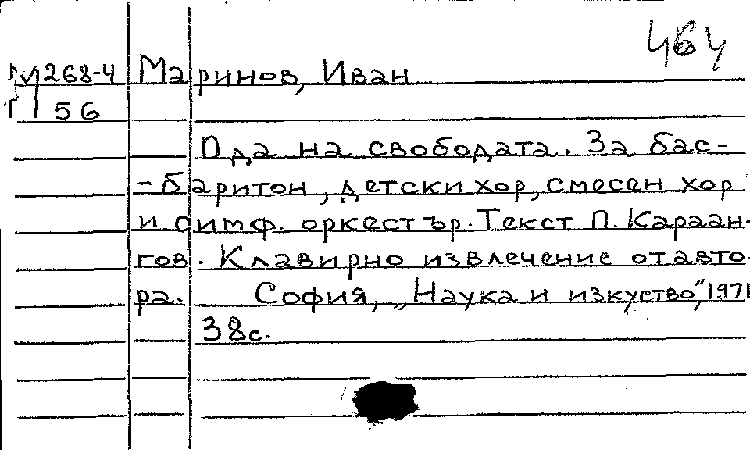 464
М 268-4 Маринов, Иван
Г 56
Ода на свободата. За бас-
-баритон, детски хор, смесен хор
и симф. оркестър. Текст П. Караан-
гов. Клавирно извлечение от авто-
ра. София, „Наука и изкуство", 1971
38с.